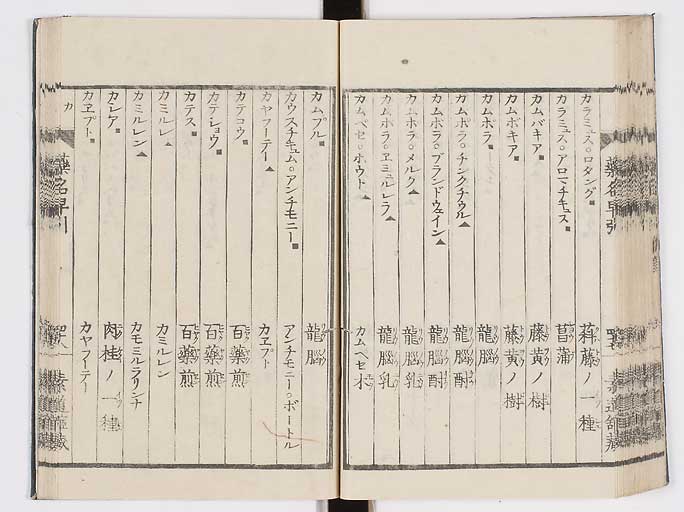 藥名早引
カラミュス○ロダング■ 蒜藤ノ一種
カラミュス○アロマチキュス■ 菖蒲
カムバキア■ 藤黄ノ樹
カムボキア■ 藤黄ノ樹
カムホラ■ 龍腦
カムホラ○チンクチウル▲ 龍腦酎
カムホラ○ブランドウェイン▲ 龍腦酎
カムホラ○メルク▲ 龍腦乳
カムホラ○ヱミュルレラ▲ 龍腦乳
カムペセ○ホウト▲ カムペセ木
カムプル■ 龍腦
カウスチキュム○アンチモニー■ アンチモニー○ボートル
カヤフーテー▲ カヱプト
カテコウ■ 百藥煎
カテショウ■ 百藥煎
カテス■ 百藥煎
カミルレ▲ カミルレン
カミルレン▲ カモミルラリンナ
カレア■ 肉桂ノ一種
カヱプト■ カヤフーテー
カ 藥名早引